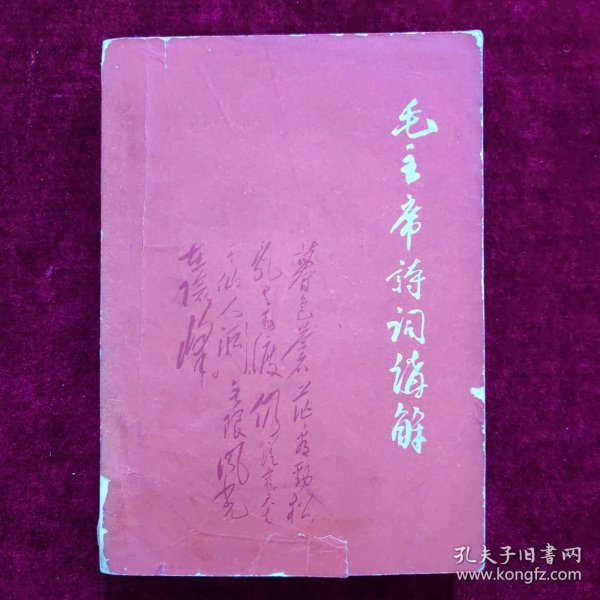 毛主席詩词講解
暮色蒼茫看勁松
乱云飛渡仍従容天
生仙人洞無限風光
在险峰。
孔夫子旧书网
www.kongfz.com